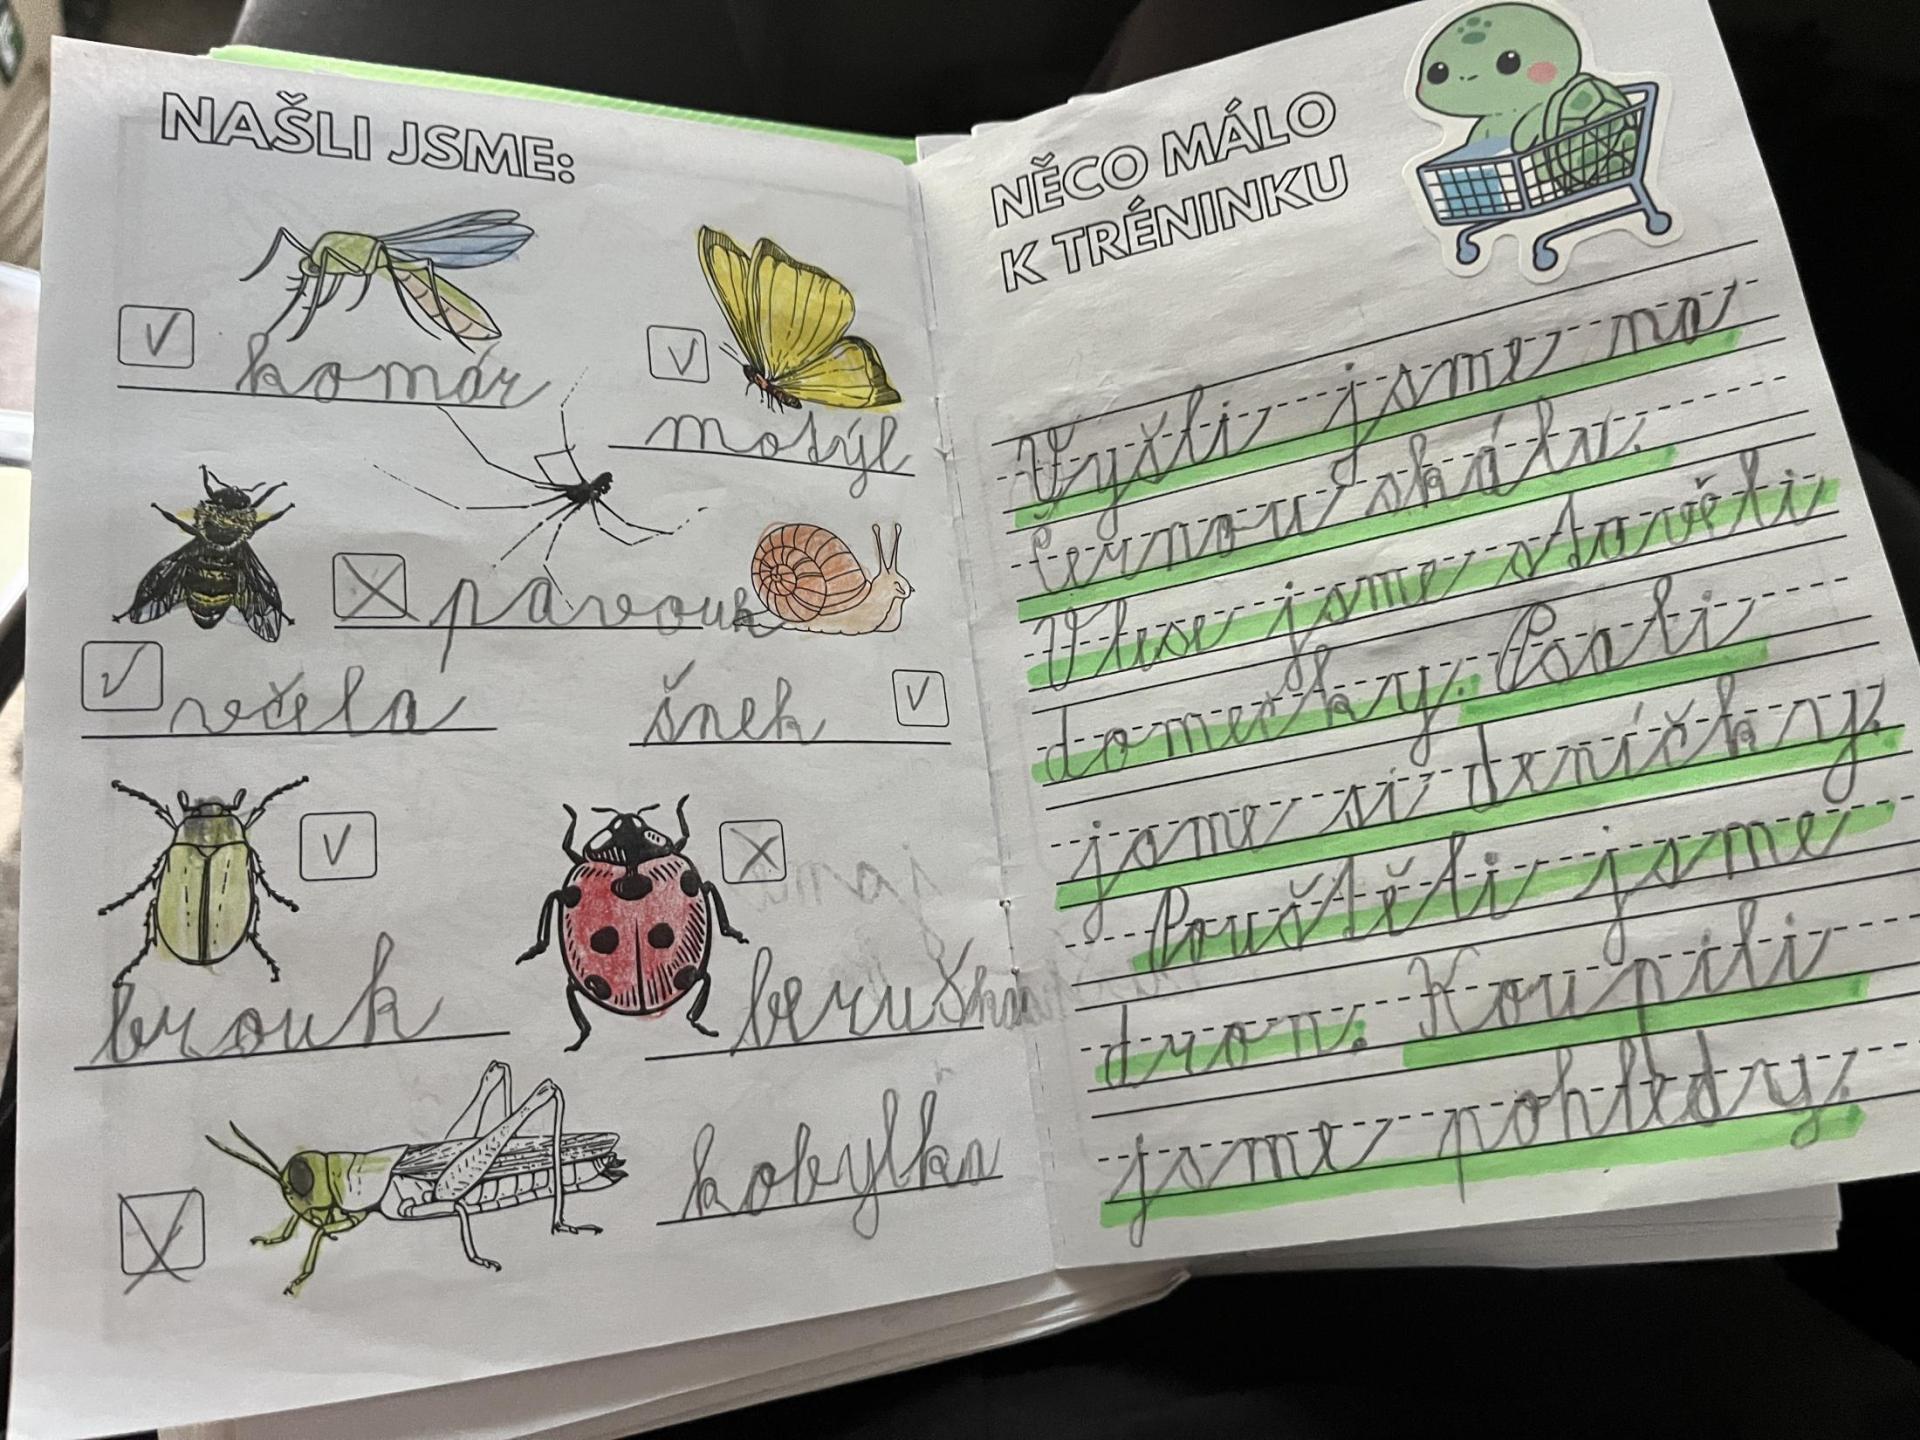 NAŠLI JSME:
komár
motýl
pavouk
včela
šnek
brouk
beruška
kobylka
NĚCO MÁLO
K TRÉNINKU
Vyšli jsme na
Černou skálu.
V lese jsme stavěli
domečky. Psali
jsme si deníčky.
Pouštěli jsme
dron. Koupili
jsme pohledy.